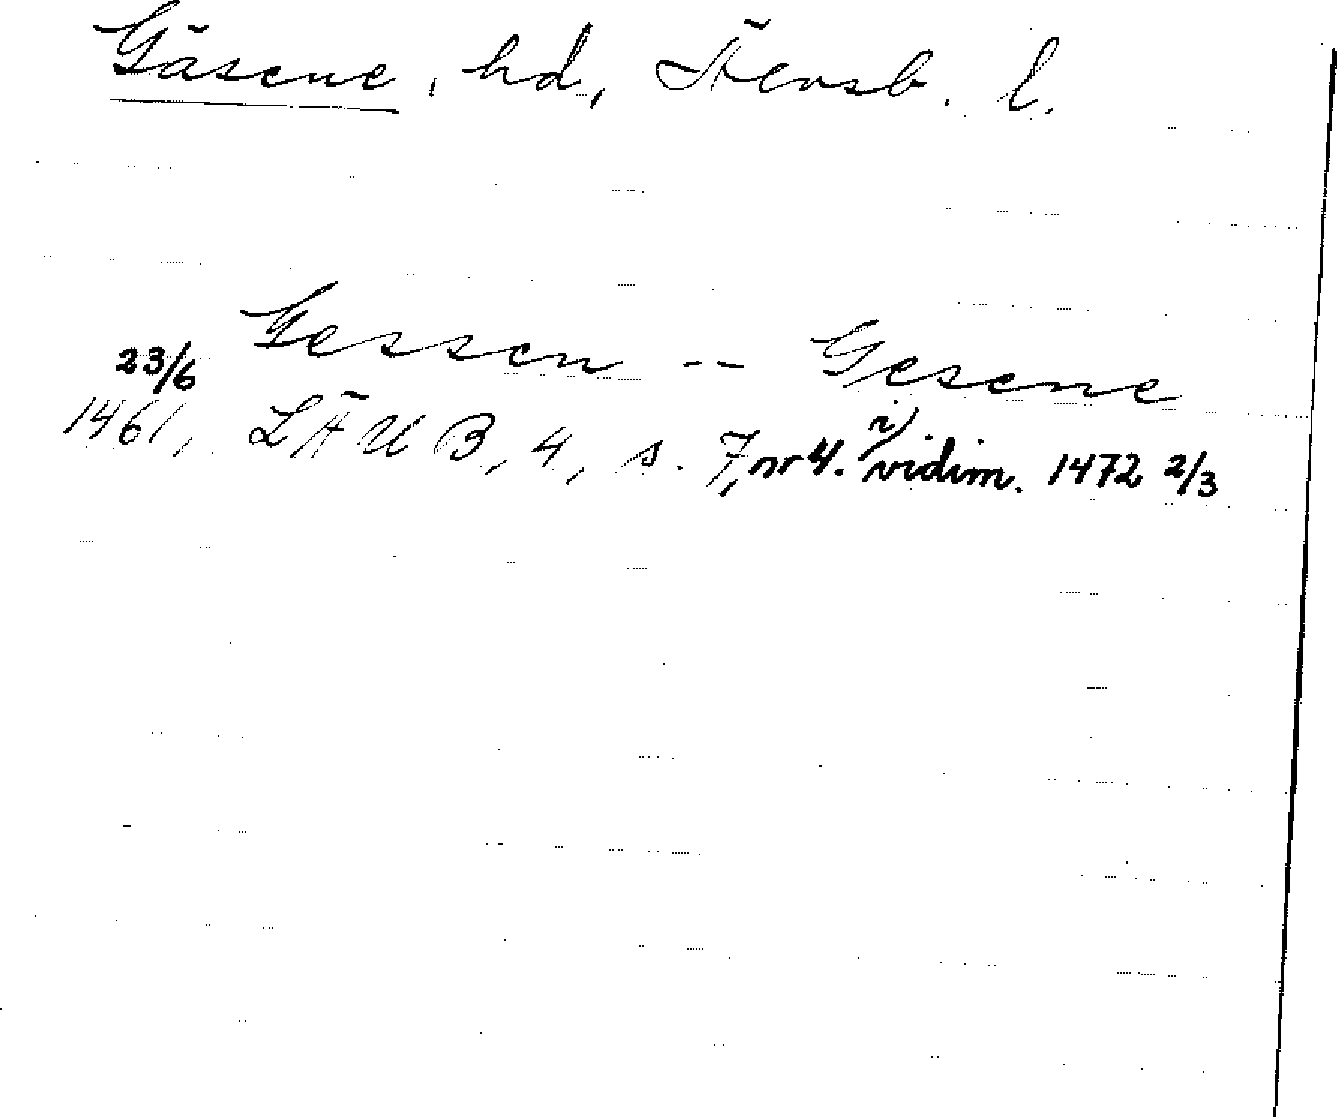 Gäsene, hd, Älvsb. l.
Gessen -- Gesene
23/6
1461, LÄUB, 4, s. 7, nr 4. i/ vidim. 1472 2/3